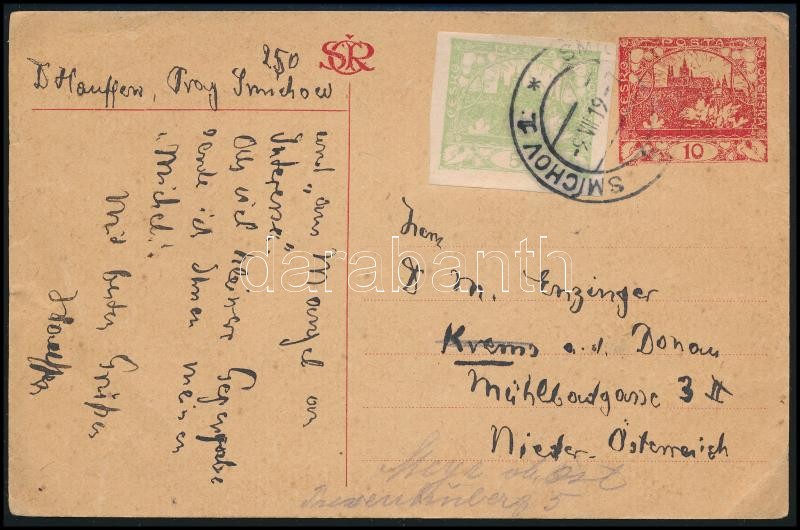 250
D Hauffen, Prag Smichow
SČR
ČESKO POSTA SLOVENSKÁ
5
ČESKO POSTA SLOVENSKÁ
10
SMÍCHOV 1 *
und "aus Mangel an
Interesse".
Als viel kleinere Gegengabe
sende ich Ihnen meinen
"Michel".
Mit besten Grüßen
Hauffen
Herrn
D M. Enzinger
Krems a. d. Donau
Mühlbachgasse 3 II
Nieder-Österreich
5
darabanth